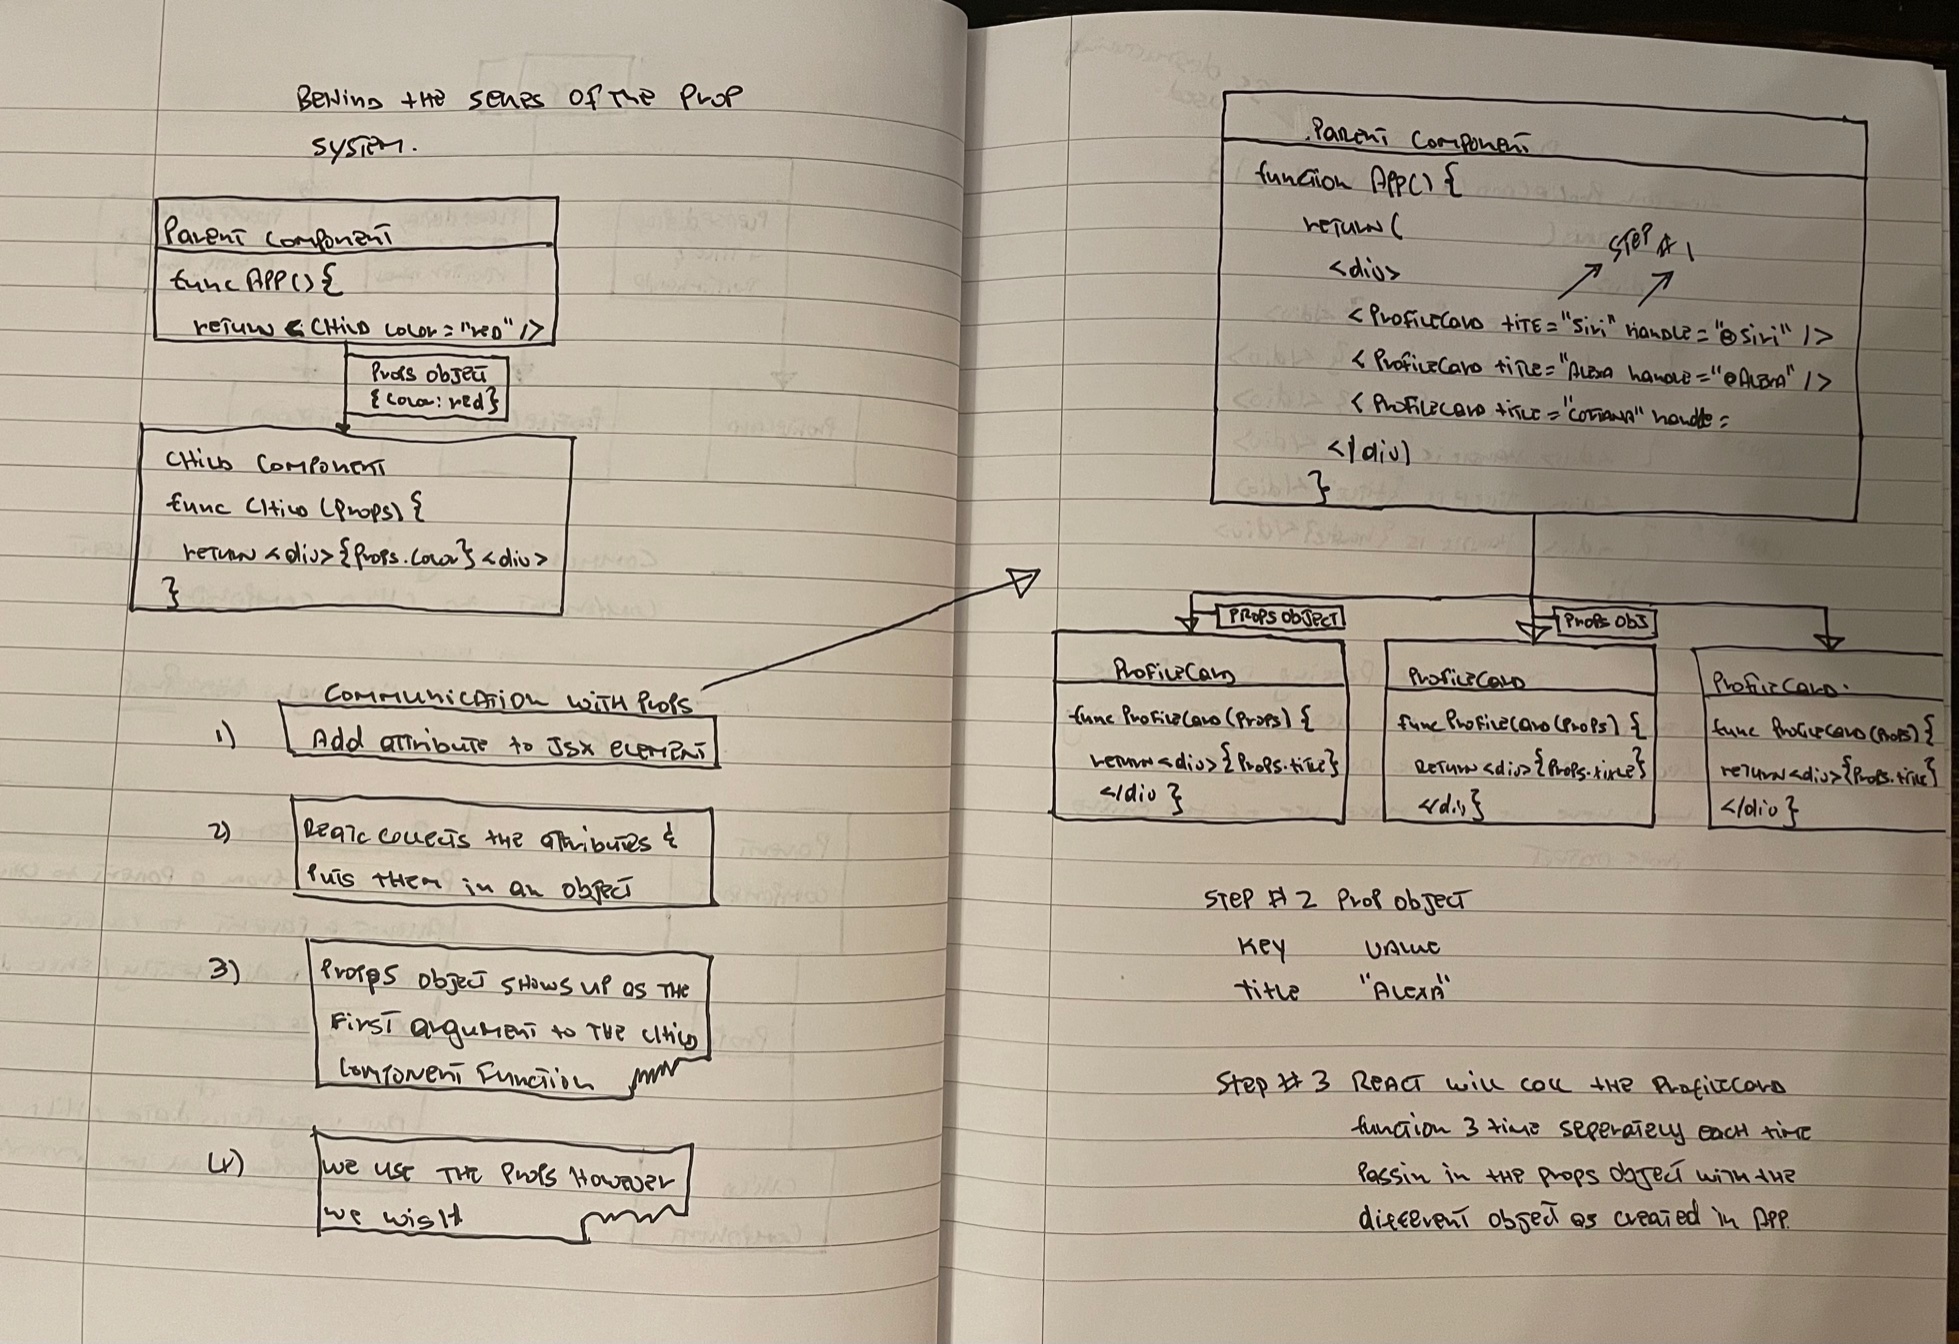 Behind the senes of the Prop
system.
Parent Component
func App() {
return < Child color = "red" />
Props object
{color: red}
Child Component
func Child (props) {
return <div> {props.color} <div>
}
Communication with Props
1) Add attribute to JSX element
2) Reatc collects the attributes &
puts them in an object
3) Props object shows up as the
first argument to the child
component function
4) we use the props however
we wish
Parent Component
function App() {
return (
Step # 1
<div>
< ProfileCard tite = "Siri" handle = "@Siri" />
< ProfileCard title = "Alexa handle = "@Alexa" />
< ProfileCard title = "Cortana" handle =
</div)
}
Props object
Props obj
ProfileCard
func ProfileCard (props) {
return <div> {props.title}
</div }
ProfileCard
func ProfileCard (props) {
return <div> {props.title}
</div}
ProfileCard.
func ProfileCard (props) {
return <div> {props.title}
</div }
Step # 2 Prop object
Key Value
title "Alexa"
Step # 3 React will call the ProfileCard
function 3 time seperately each time
passin in the props object with the
different object as created in App.